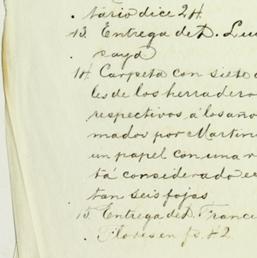 . tario dice 24.
. 13. Entrega de D. Lui
zaya
. 14. Carpeta con siete
les de los herradero
respectivos á los año
mados por Martin
un papel con una r
tá considerado en
tan seis fojas
. 15. Entrega de D. France
. Flores en fs. 42.